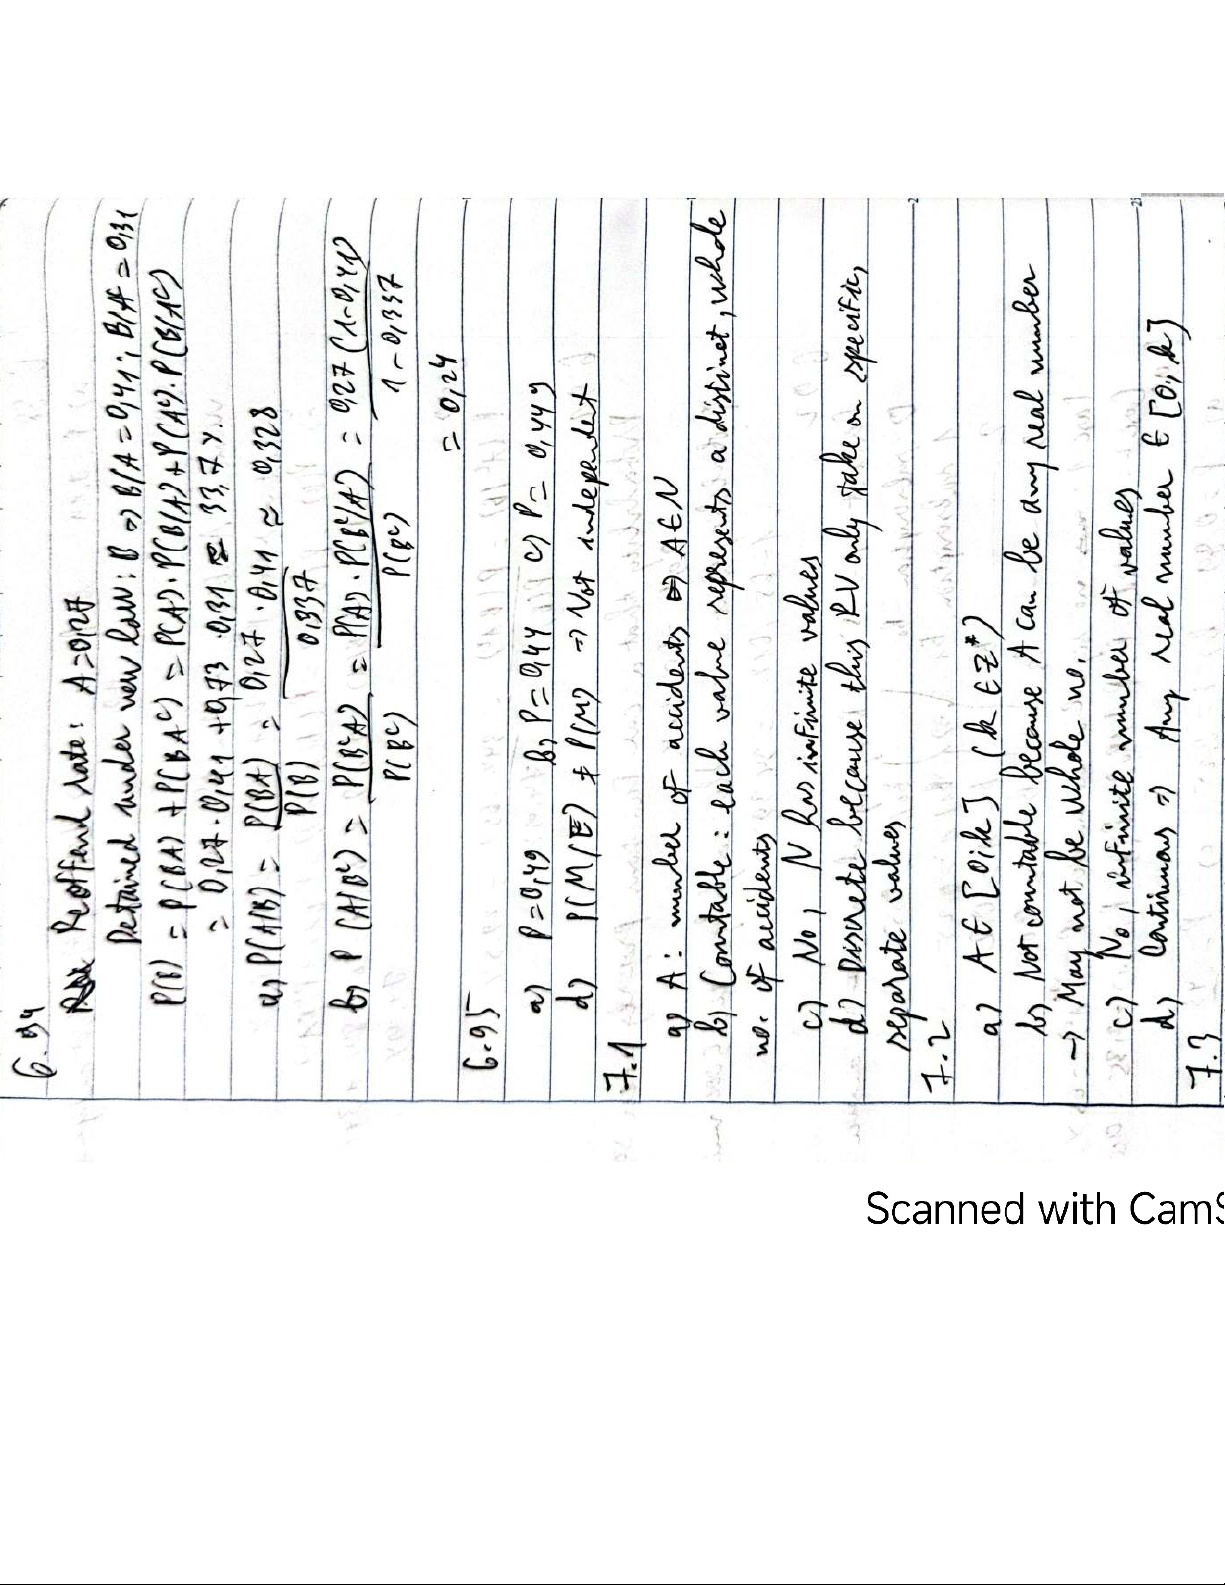 6.94
Reoffend rate: A=0,27
Detained under new law: B => B/A = 0,41; B/Aᶜ = 0,31
P(B) = P(BA) + P(BAᶜ) = P(A).P(B/A) + P(Aᶜ).P(B/Aᶜ)
= 0,27.0,41 + 0,73.0,31 = 33,7%.
a) P(A/B) = P(BA)/P(B) = 0,27.0,41/0,337 ≈ 0,328
b) P(A/Bᶜ) = P(BᶜA)/P(Bᶜ) = P(A).P(Bᶜ/A)/P(Bᶜ) = 0,27(1-0,41)/1-0,337
= 0,24
6.95
a) P=0,49 b) P=0,44 c) P=0,449
d) P(M/E) ≠ P(M) => Not independent
7.1
a) A: number of accidents => A ∈ N
b) Countable: each value represents a distinct, whole
no. of accidents
c) No, N has infinite values
d) Discrete because this RV only take on specific,
separate values
7.2
a) A ∈ [0;k] (k ∈ Z*)
b) Not countable because A can be any real number
-> May not be whole no.
c) No, infinite number of values
d) Continuous => Any real number ∈ [0;k]
7.3
Scanned with CamS